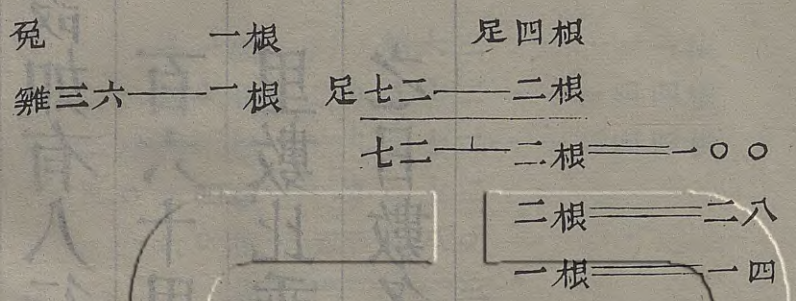 兔 一根 足四根
雞三六——一根 足七二——二根
七二—⊥—二根══一〇〇
二根══二八
一根══一四